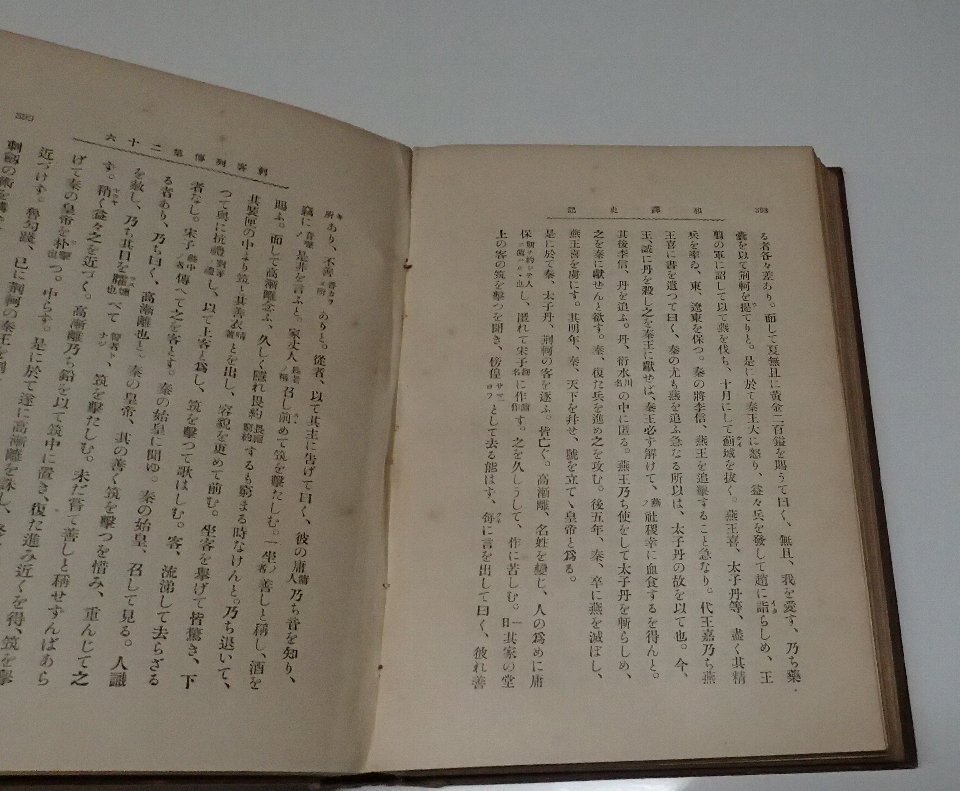 和譯史記
398
る者各々差あり。而して夏無且に黄金二百鎰を賜うて曰く、無且、我を愛す、乃ち藥
嚢を以て荊軻を提てりと。是に於て秦王大に怒り、益々兵を發して趙に詣らしめ、王
翦の軍に詔して以て燕を伐ち、十月にして薊城を拔く。燕王喜、太子丹等、盡く其精
兵を率ゐ、東、遼東を保つ。秦の將李信、燕王を追擊すること急なり。代王嘉乃ち燕
王喜に書を遺つて曰く、秦の尤も燕を追ふ急なる所以は、太子丹の故を以て也。今、
王、誠に丹を殺し之を秦王に獻ぜば、秦王必ず解けて、燕ノ社稷幸に血食するを得んと。
其後李信、丹を追ふ。丹、衍水川名の中に匿る。燕王乃ち使をして太子丹を斬らしめ、
之を秦に獻ぜんと欲す。秦、復た兵を進め之を攻む。後五年、秦、卒に燕を滅ぼし、
燕王喜を虜にす。其明年、秦、天下を幷せ、號を立てゝ皇帝と爲る。
是に於て秦、太子丹、荊軻の客を逐ふ。皆亡ぐ。高漸離、名姓を變じ、人の爲めに庸
保し、匿れて宋子に作す。之を久しうして、作に苦しむ。一日其家の堂
上の客の筑を擊つを聞き、傍偟として去る能はず、每に言を出して曰く、彼れ善
刺客列傳第二十六
所あり、不善ありと。從者、以て其主に告げて曰く、彼の庸人乃ち音を知り、
竊に是非を言ふと。家丈人召し前めて筑を擊たしむ。一坐善しと稱し、酒を
賜ふ。而して高漸離念ふ、久しく隱れ畏約するも窮まる時なけんと。乃ち退いて、
其裝匣の中より筑と其善衣とを出し、容貌を更めて前む。坐客を擧げて皆驚き、下
つて與に抗禮し、以て上客と爲し、筑を擊つて歌はしむ。客、流涕して去らざる
者なし。宋子傳へて之を客とす。秦の始皇に聞ゆ。秦の始皇、召して見る。人識
る者あり、乃ち曰く、高漸離也と。秦の皇帝、其の善く筑を擊つを惜み、重んじて之
を赦し、乃ち其目を矐べて、筑を擊たしむ。未だ嘗て善しと稱せずんばあら
ず。稍く益々之を近づく。高漸離乃ち鉛を以て筑中に置き、復た進み近くを得、筑を擧
げて秦の皇帝を朴つ。中らず。是に於て遂に高漸離を誅し、
近づけず。魯勾踐、已に荊軻の秦王を刺
刺劔の術を講